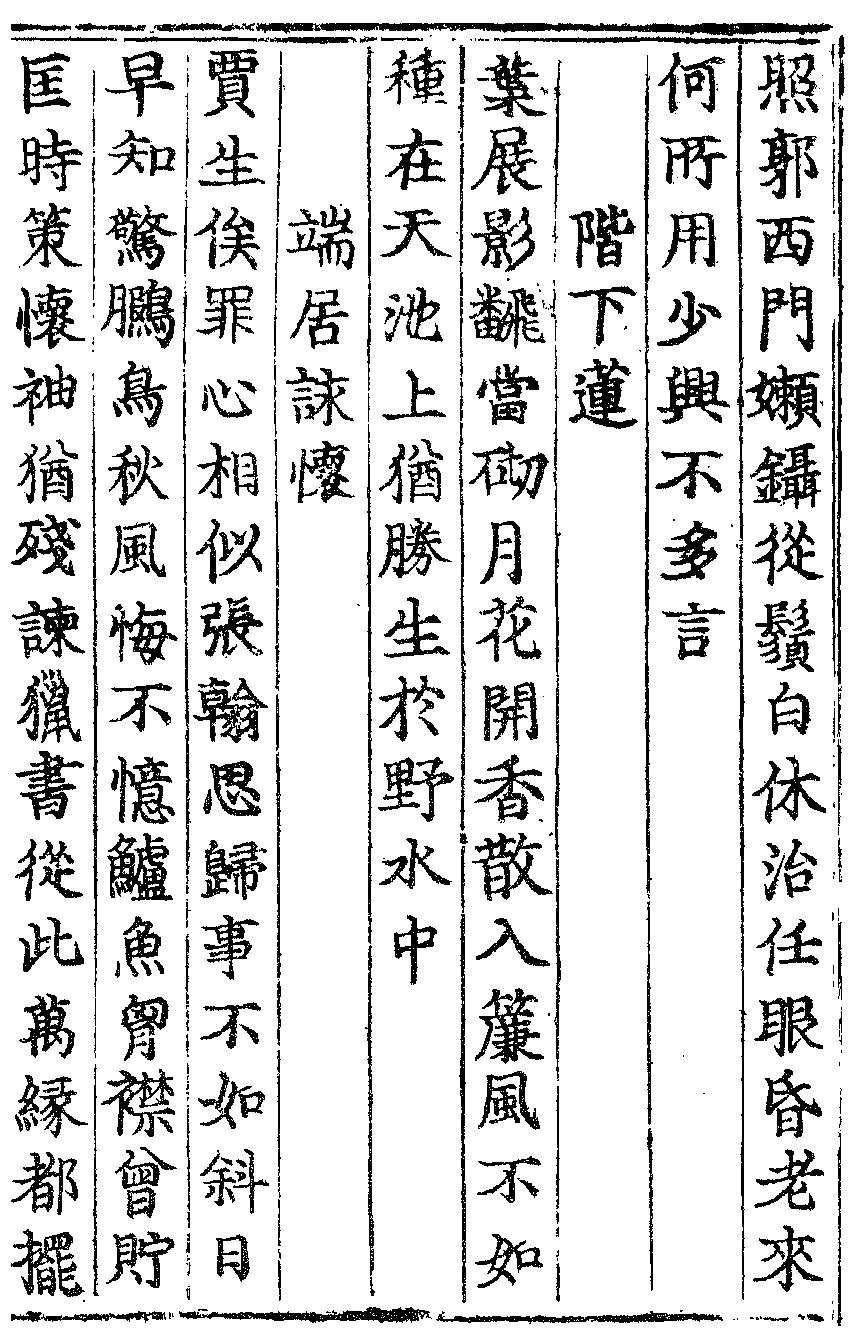 照郭西門嬾鑷從鬚白休治任眼昏老來
何所用少興不多言
階下蓮
葉展影飜當砌月花開香散入簾風不如
種在天池上猶勝生於野水中
端居詠懷
賈生俟罪心相似張翰思歸事不如斜日
早知驚鵩鳥秋風悔不憶鱸魚胷襟曾貯
匡時策懷袖猶殘諫獵書從此萬緣都擺